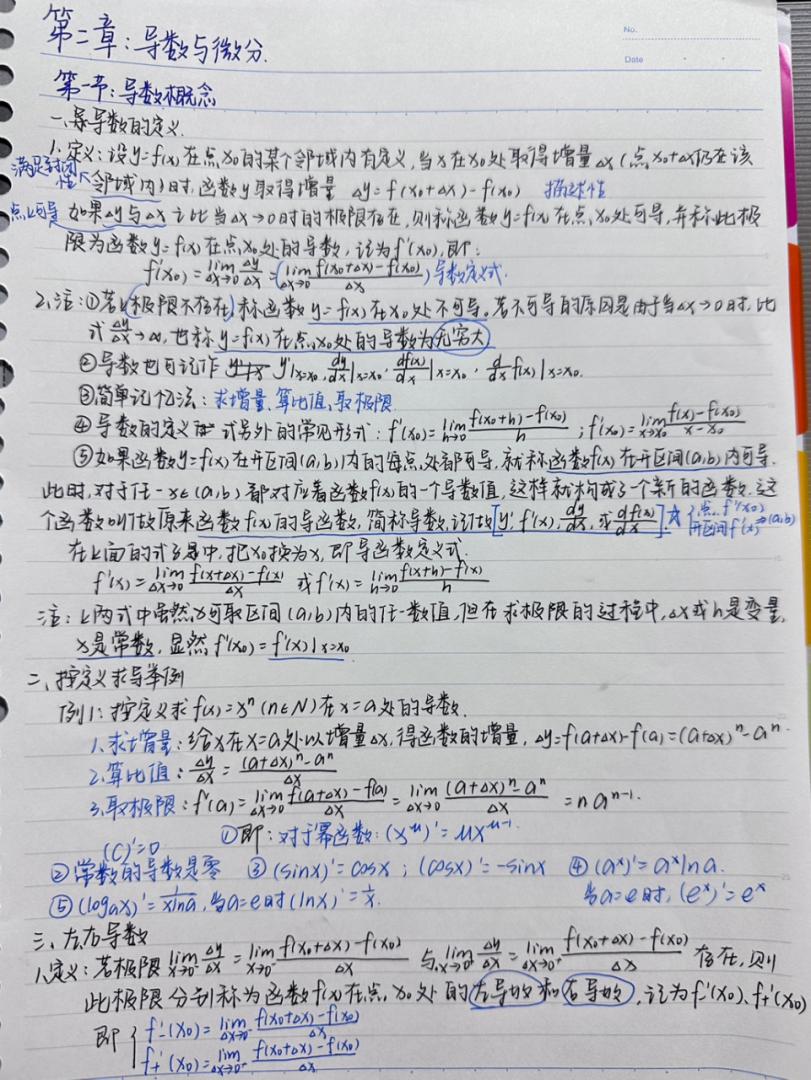 第二章：导数与微分.
No.
Date
第一节：导数概念
一、导数的定义.
1. 定义：设y=f(x)在点x₀的某个邻域内有定义，当x在x₀处取得增量△x（点x₀+△x仍在该
邻域内）时，函数y取得增量 △y=f(x₀+△x)-f(x₀) 描述性
点x可导 如果△y与△x之比当△x→0时的极限存在，则称函数y=f(x)在点x₀处可导，并称此极
限为函数y=f(x)在点x₀处的导数，记为f'(x₀)，即：
f'(x₀)=lim△x→0 △y/△x=(lim△x→0 (f(x₀+△x)-f(x₀))/△x) 导数定义式.
2. 注：①若(极限不存在)称函数y=f(x)在x₀处不可导。若不可导的原因是由于当△x→0时，比
式△y/△x→∞，也称y=f(x)在点x₀处的导数为无穷大
②导数也可记作 y'|x=x₀, dy/dx|x=x₀, df(x)/dx|x=x₀, d/dx f(x)|x=x₀.
③简单记忆法：求增量、算比值、取极限
④导数的定义式另外的常见形式：f'(x₀)=lim h→0 (f(x₀+h)-f(x₀))/h ; f'(x₀)=lim x→x₀ (f(x)-f(x₀))/(x-x₀)
⑤如果函数y=f(x)在开区间(a,b)内的每点处都可导，就称函数f(x)在开区间(a,b)内可导.
此时，对于任一x∈(a,b)都对应着函数f(x)的一个导数值，这样就构成了一个新的函数. 这
个函数叫做原来函数f(x)的导函数，简称导数，记做[y', f'(x), dy/dx, 或 df(x)/dx]. ☆{点 f'(x₀)
开区间f'(x)⇒(a,b)
在上面的式子中，把x₀换为x，即导函数定义式.
f'(x)=lim△x→0 (f(x+△x)-f(x))/△x 或f'(x)=lim h→0 (f(x+h)-f(x))/h
注：上两式中虽然x可取区间(a,b)内的任一数值，但在求极限的过程中，△x或h是变量，
x是常数，显然f'(x₀)=f'(x)|x=x₀
二、按定义求导举例
例1：按定义求f(x)=xⁿ(n∈N)在x=a处的导数.
1. 求增量：给x在x=a处以增量△x，得函数的增量，△y=f(a+△x)-f(a)=(a+△x)ⁿ-aⁿ.
2. 算比值：△y/△x=((a+△x)ⁿ-aⁿ)/△x
3. 取极限：f'(a)=lim△x→0 (f(a+△x)-f(a))/△x=lim△x→0 ((a+△x)ⁿ-aⁿ)/△x =naⁿ⁻¹.
①即：对于幂函数：(x^μ)'=μx^(μ-1)
(C)'=0
②常数的导数是零 ③(sinx)'=cosx；(cosx)'=-sinx ④(aˣ)'=aˣlna.
⑤(logₐx)'=1/(xlna)，当a=e时(lnx)'=1/x. 当a=e时，(eˣ)'=eˣ
三、左右导数
1. 定义：若极限lim x→0⁻ △y/△x=lim x→0⁻ (f(x₀+△x)-f(x₀))/△x 与lim x→0⁺ △y/△x=lim△x→0⁺ (f(x₀+△x)-f(x₀))/△x 存在，则
此极限分别称为函数f(x)在点x₀处的左导数和右导数，记为f₋'(x₀)、f₊'(x₀)
即{f₋'(x₀)=lim△x→0⁻ (f(x₀+△x)-f(x₀))/△x
f₊'(x₀)=lim△x→0⁺ (f(x₀+△x)-f(x₀))/△x